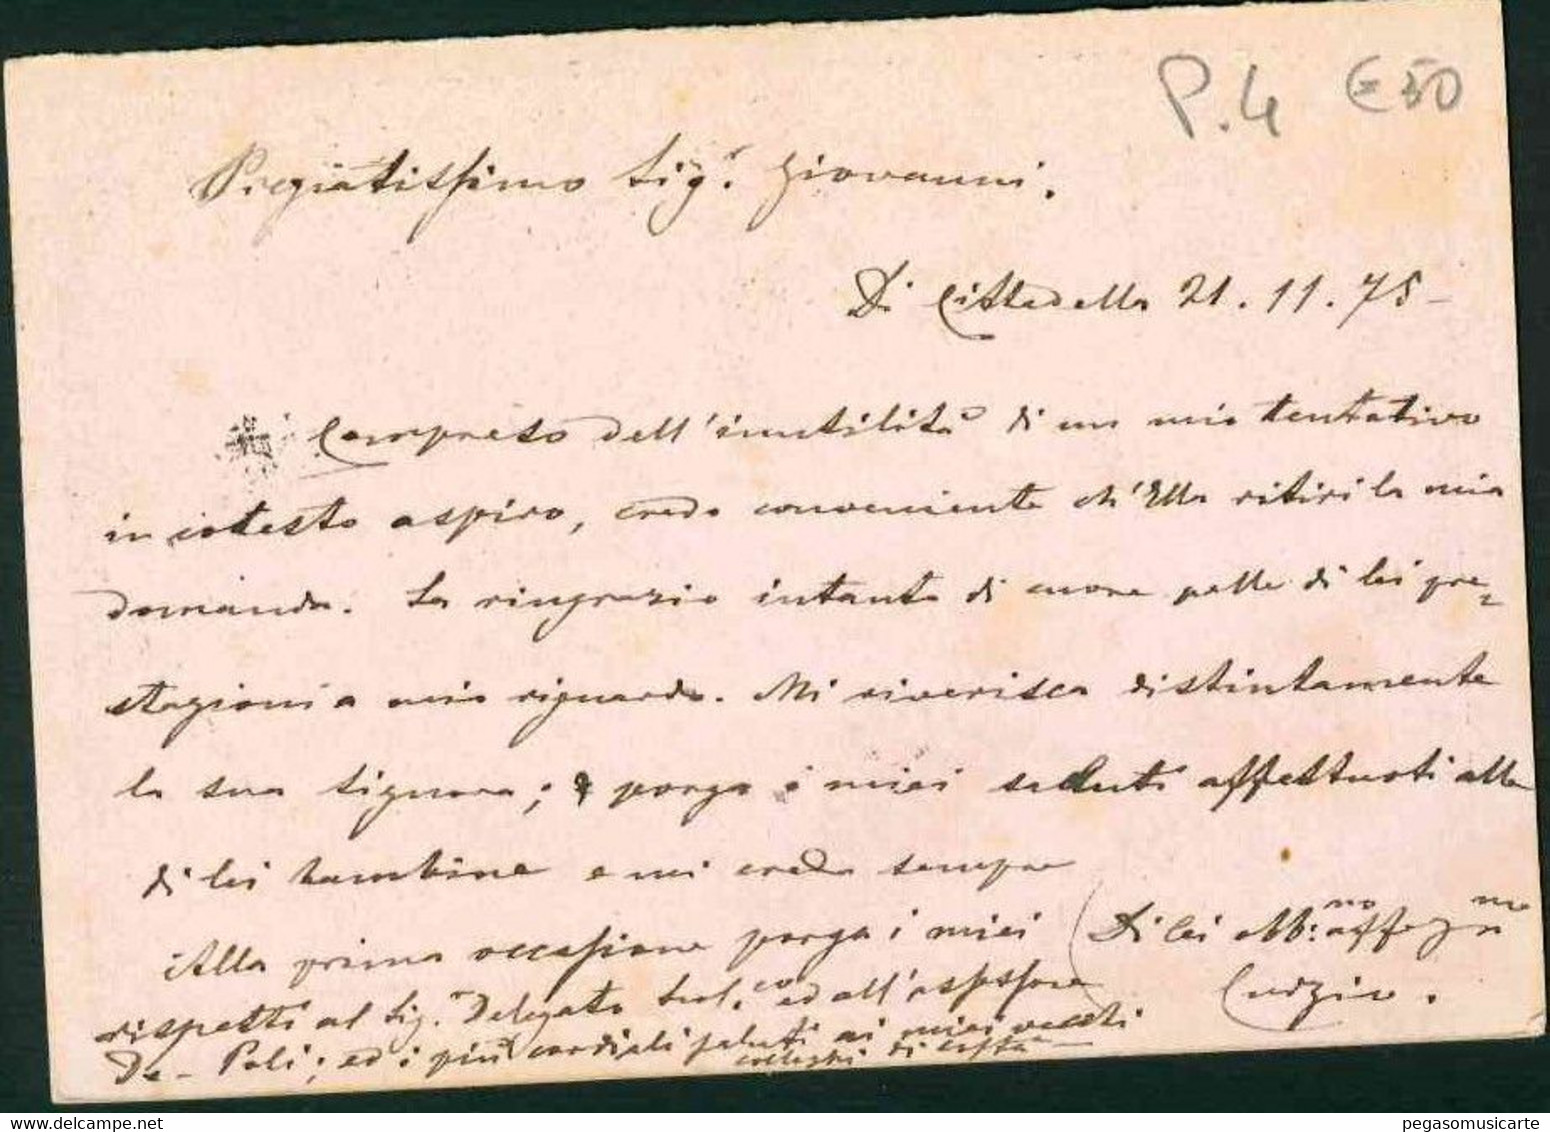 P.4 € 50
Pregiatissimo Sig.r Giovanni.
Di Cittadella 21.11.75-
Compreso dell'inutilità di un mio tentativo
in cotesto aspiro, credo conveniente ch'Ella ritiri la mia
domanda. La ringrazio intanto di cuore pelle di lei pre=
stazioni a mio riguardo. Mi riverisca distintamente
la sua Signora; e porga i miei saluti affettuosi alle
di lei bambine e mi creda sempre
Alla prima occasione porga i miei
Di lei Obb:mo affez.mo
rispetti al Sig.r Delegato Scol.co ed all'assessore
Curzio.
De-Poli; ed i più cordiali saluti ai miei vecchi
colleghi di costà-
pegasomusicarte